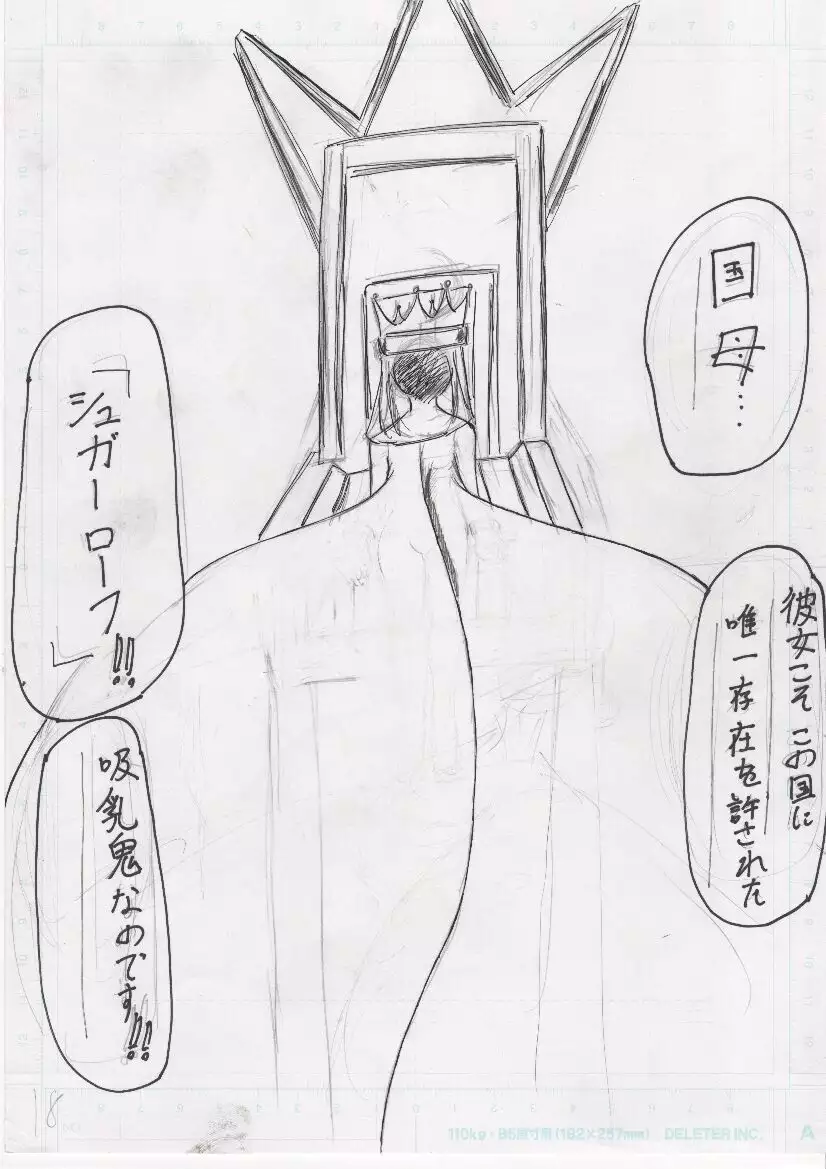 国母…
彼女こそこの国に
唯一存在を許された
「シュガーローフ」!!
吸乳鬼なのです!!!
18
110kg・B5原寸用(182×257mm) DELETER INC. A